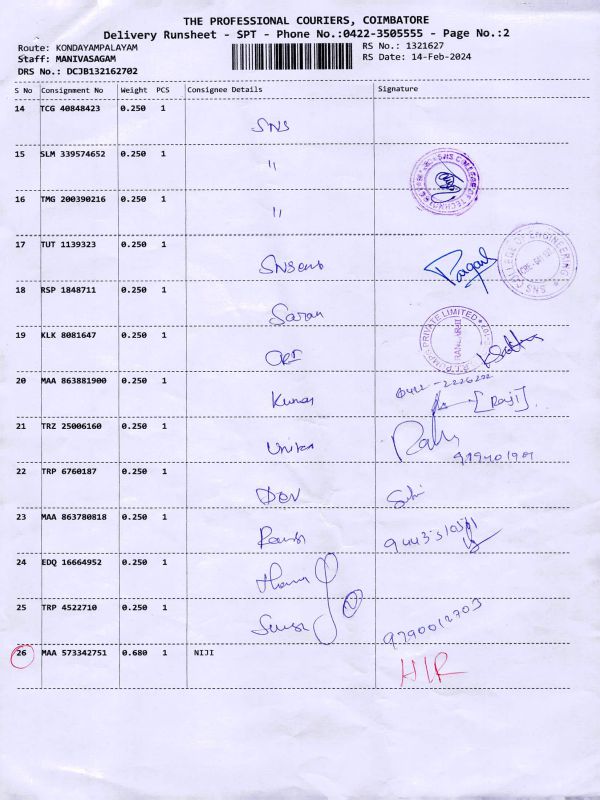 THE PROFESSIONAL COURIERS, COIMBATORE
Delivery Runsheet - SPT - Phone No.:0422-3505555 - Page No.:2
Route: KONDAYAMPALAYAM RS No.: 1321627
Staff: MANIVASAGAM RS Date: 14-Feb-2024
DRS No.: DCJB132162702
S No Consignment No Weight PCS Consignee Details Signature
14 TCG 40848423 0.250 1
SNS
15 SLM 339574652 0.250 1
"
16 TMG 200390216 0.250 1
"
17 TUT 1139323 0.250 1
COLLEGE OF ENGINEERING
SNS
18 RSP 1848711 0.250 1
Saran
19 KLK 8081647 0.250 1
PUMPS PRIVATE LIMITED
20 MAA 863881900 0.250 1
Kumar
[Raji]
21 TRZ 25006160 0.250 1
22 TRP 6760187 0.250 1
DEV
23 MAA 863780818 0.250 1
24 EDQ 16664952 0.250 1
25 TRP 4522710 0.250 1
9790012703
26 MAA 573342751 0.680 1 NIJI
HIR